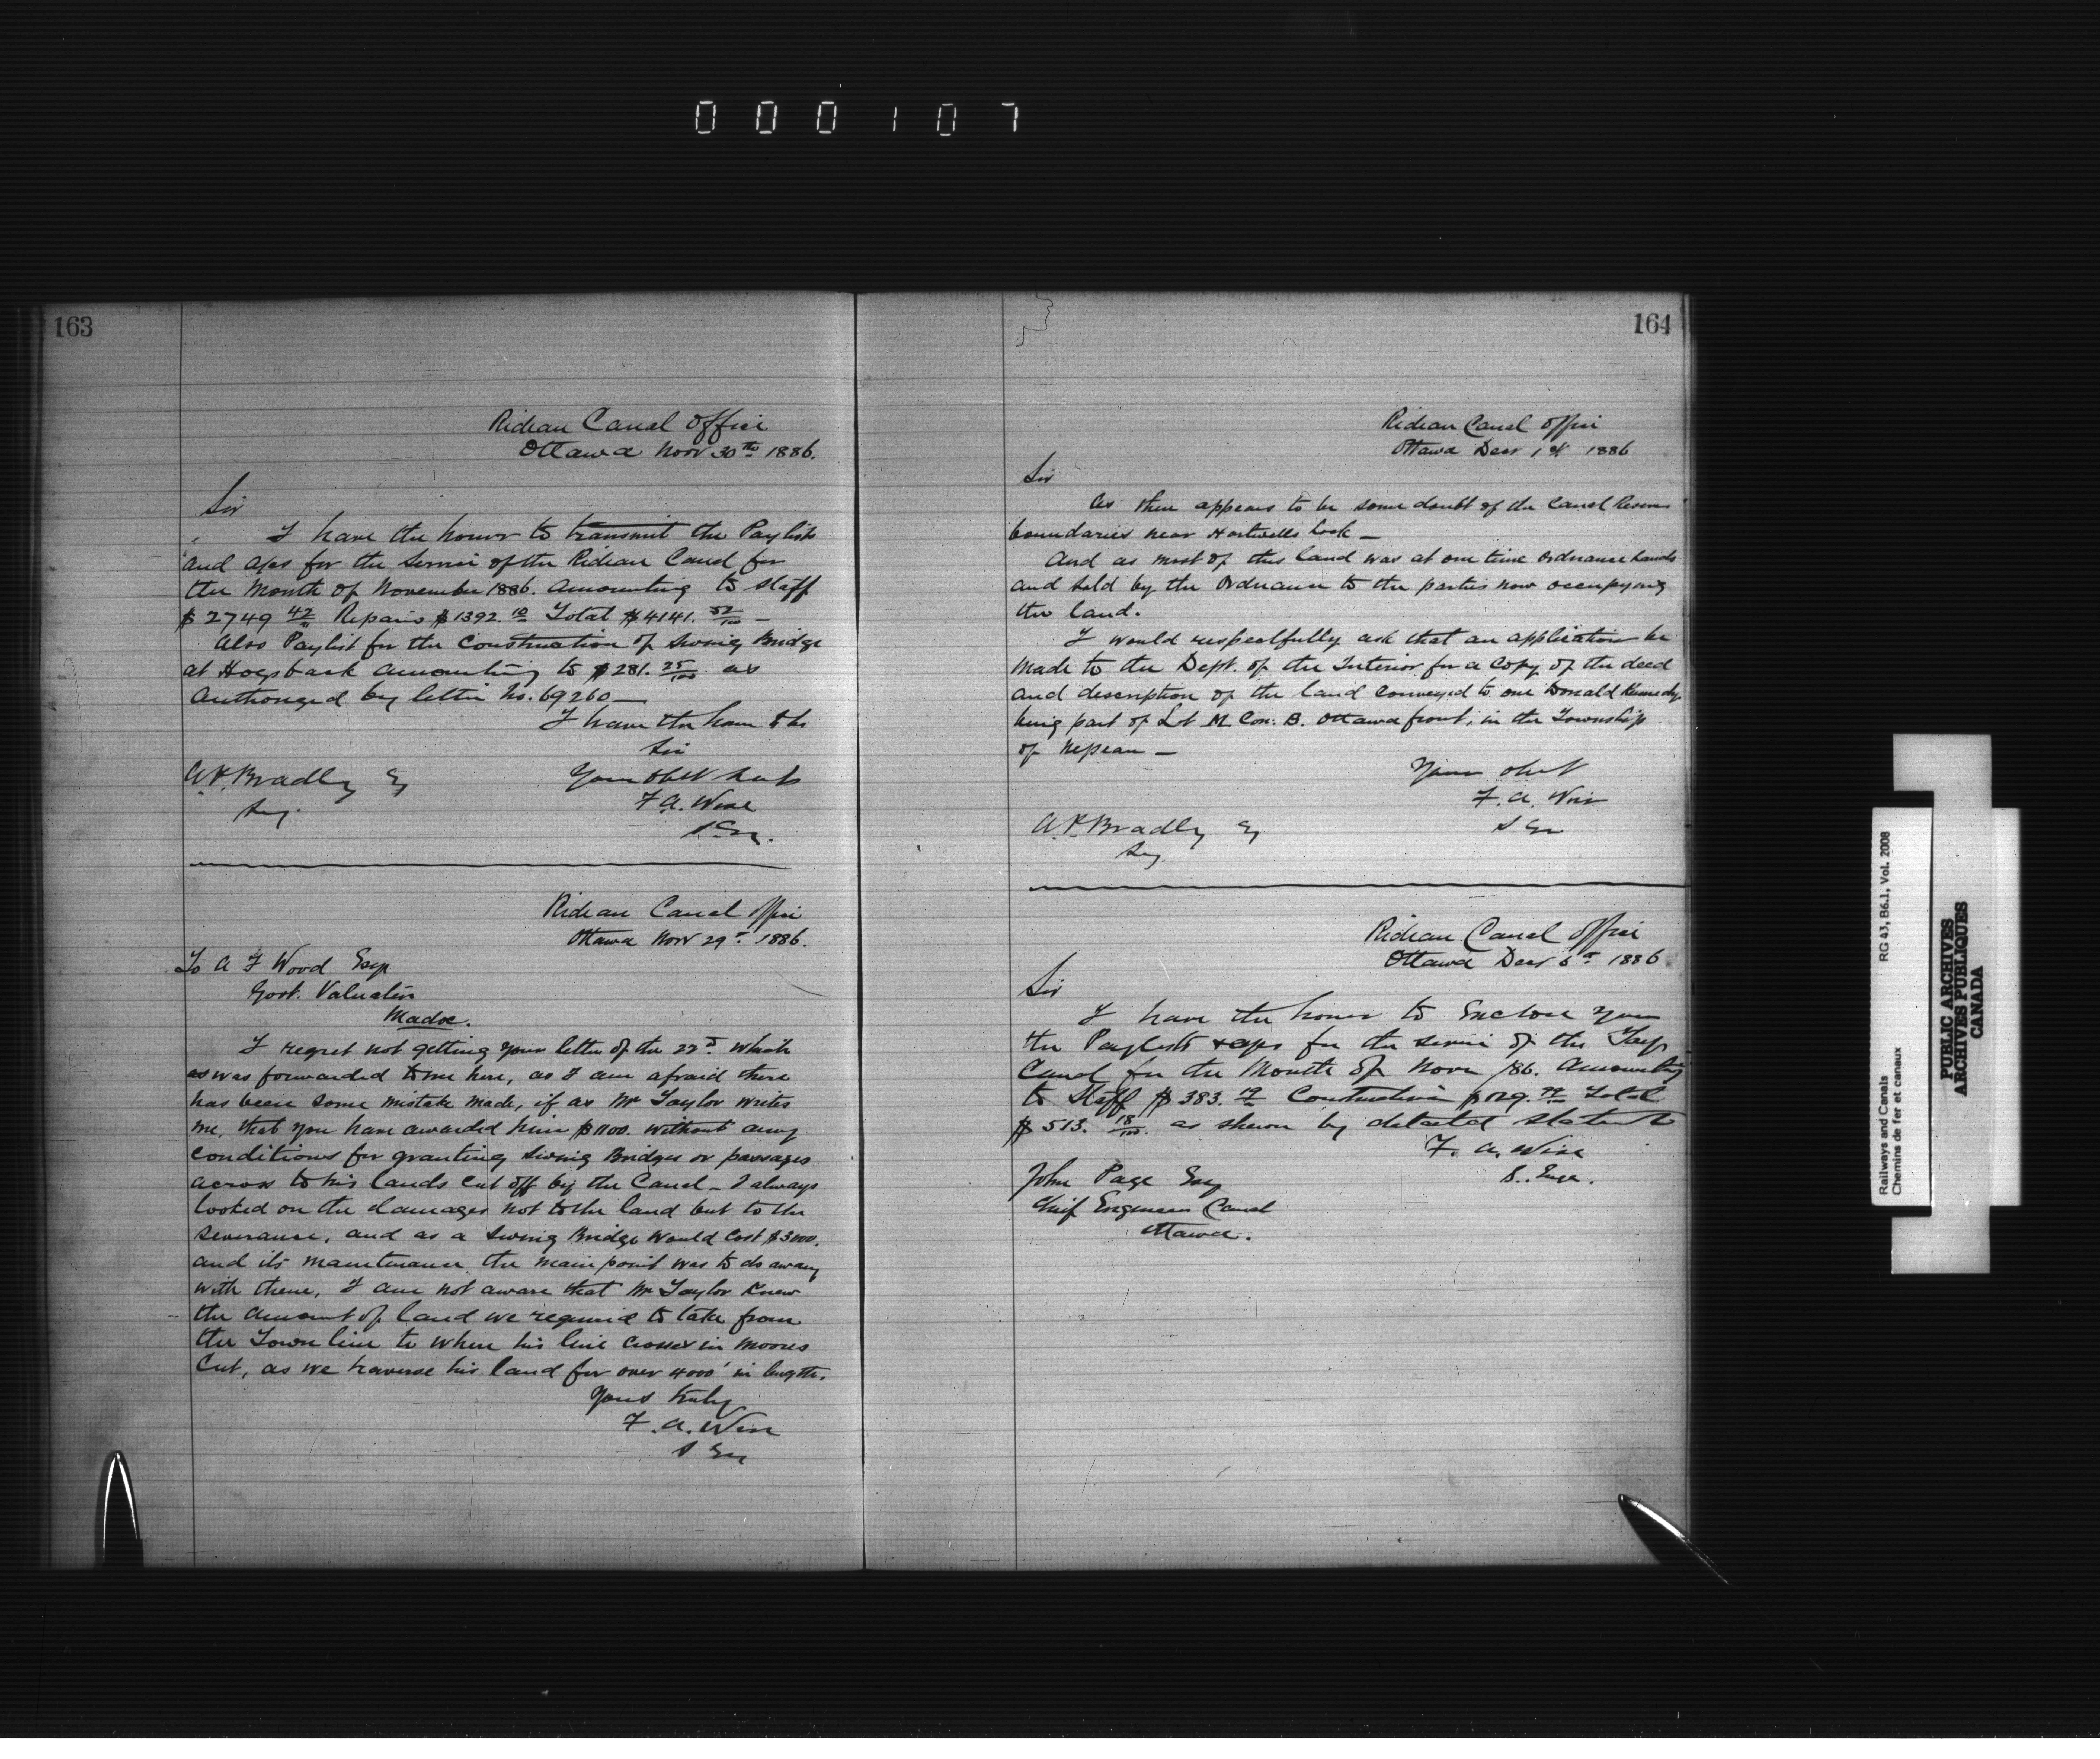 000107
163
Rideau Canal Office
Ottawa Novr 30th 1886.
Sir
I have the honor to transmit the Paylists
and a/cs for the Service of the Rideau Canal for
the Month of November 1886. amounting to Staff
$2749 42/100 Repairs $1392. 10 Total $4141. 52/100 —
Also Paylist for the Construction of Swing Bridge
at Hogsback amounting to $281. 25/100 as
Authorized by letter No. 69260 —
I have the honor to be
Sir
Your Obt Servt
A.P. Bradley Esq
Secy.
F A. Wise
S. Eng.
Rideau Canal Office
Ottawa Novr 29th 1886.
To A F Wood Esqr
Govt. Valuator
Madoc.
I regret not getting your letter of the 22d. which
as was forwarded to me here, as I am afraid there
has been some mistake made, if as Mr Taylor writes
me, that you have awarded him $1100. without any
conditions for granting Swing Bridges or passages
across to his lands cut off by the Canal — I always
looked on the damages not to the land but to the
Severance, and as a Swing Bridge would Cost $3000.
and its maintenance the main point was to do away
with them, I am not aware that Mr Taylor knew
the amount of land we required to take from
the Town line to where his line crosses in Moores
Cut, as we traverse his land for over 4000' in length.
Yours truly
F. A. Wise
S Eng
164
Rideau Canal Office
Ottawa Decr 1st 1886
Sir
As there appears to be some doubt of the Canal Reserve
boundaries near Hartwells Lock —
And as most of this land was at one time Ordnance Lands
and sold by the Ordnance to the parties now occupying
the land.
I would respectfully ask that an application be
made to the Dept. of the Interior for a Copy of the deed
and description of the land conveyed to one Donald Kennedy.
being part of Lot M. Con: B. Ottawa front, in the Township
of Nepean —
Your obt
F. A. Wise
S Eng
A.P. Bradley Esq
Secy.
Rideau Canal Office
Ottawa Decr. 6th 1886
Sir
I have the honor to Enclose you
the Paylists & a/cs for the service of the Tay
Canal for the Month of Novr /86. Amounting
to Staff $383. 19 Construction $129. 99 Total
$513. 18/100. as shewn by detailed Statement
F. A. Wise
S. Eng.
John Page Esq
Chief Engineer Canal
Ottawa.
Railways and Canals
Chemins de fer et canaux
RG 43, B6.1, Vol. 2008
PUBLIC ARCHIVES
ARCHIVES PUBLIQUES
CANADA